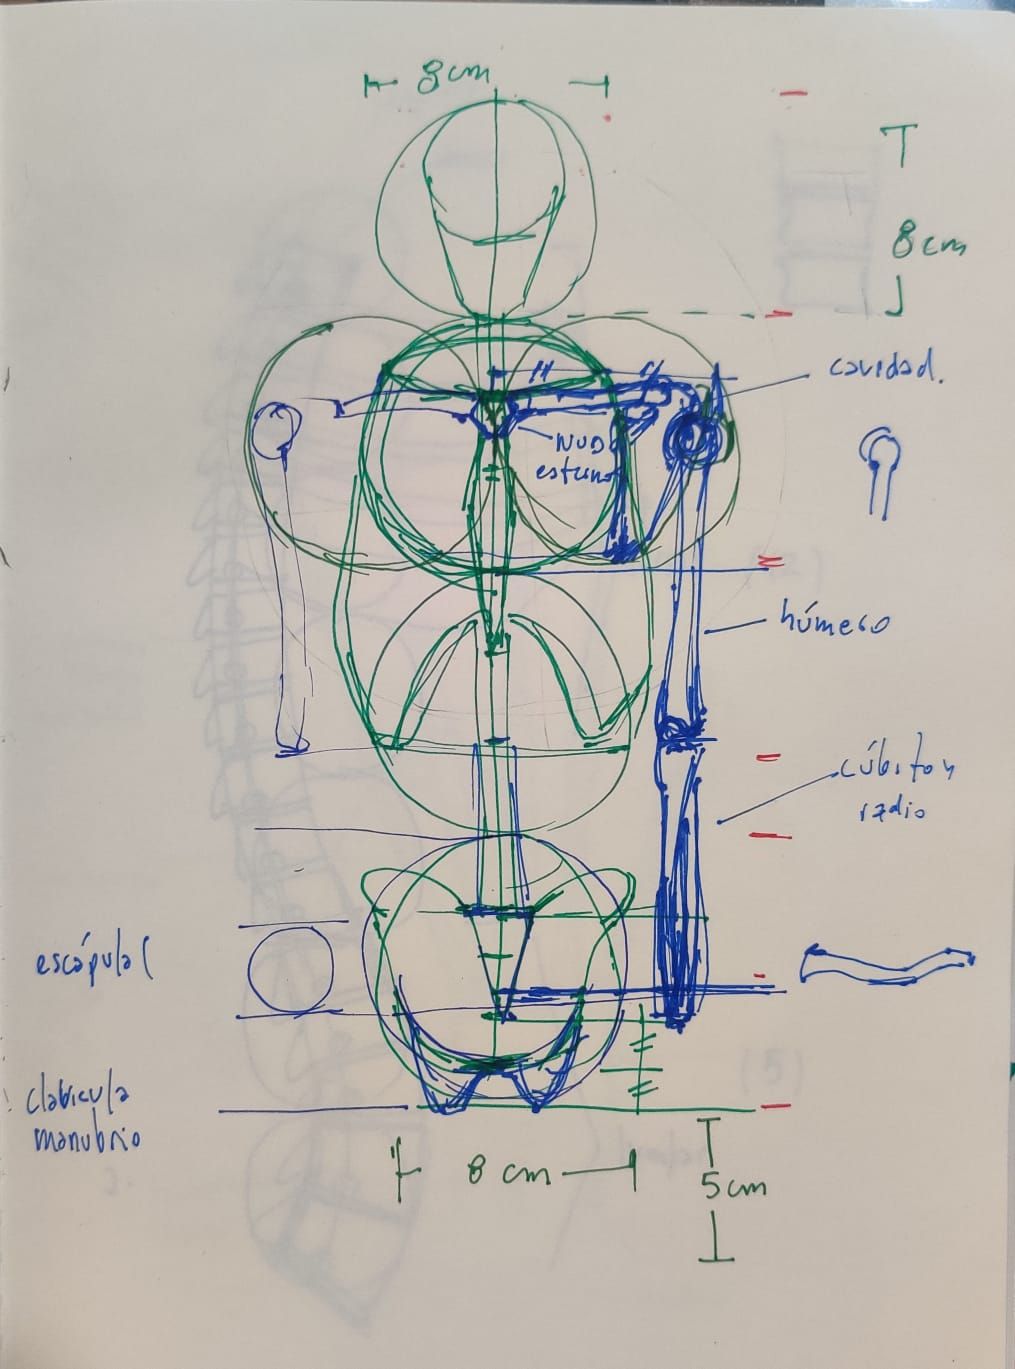 8cm
8cm
cavidad.
húmero
cúbito y
radio
escápula
clabicula
manubrio
8 cm
5cm